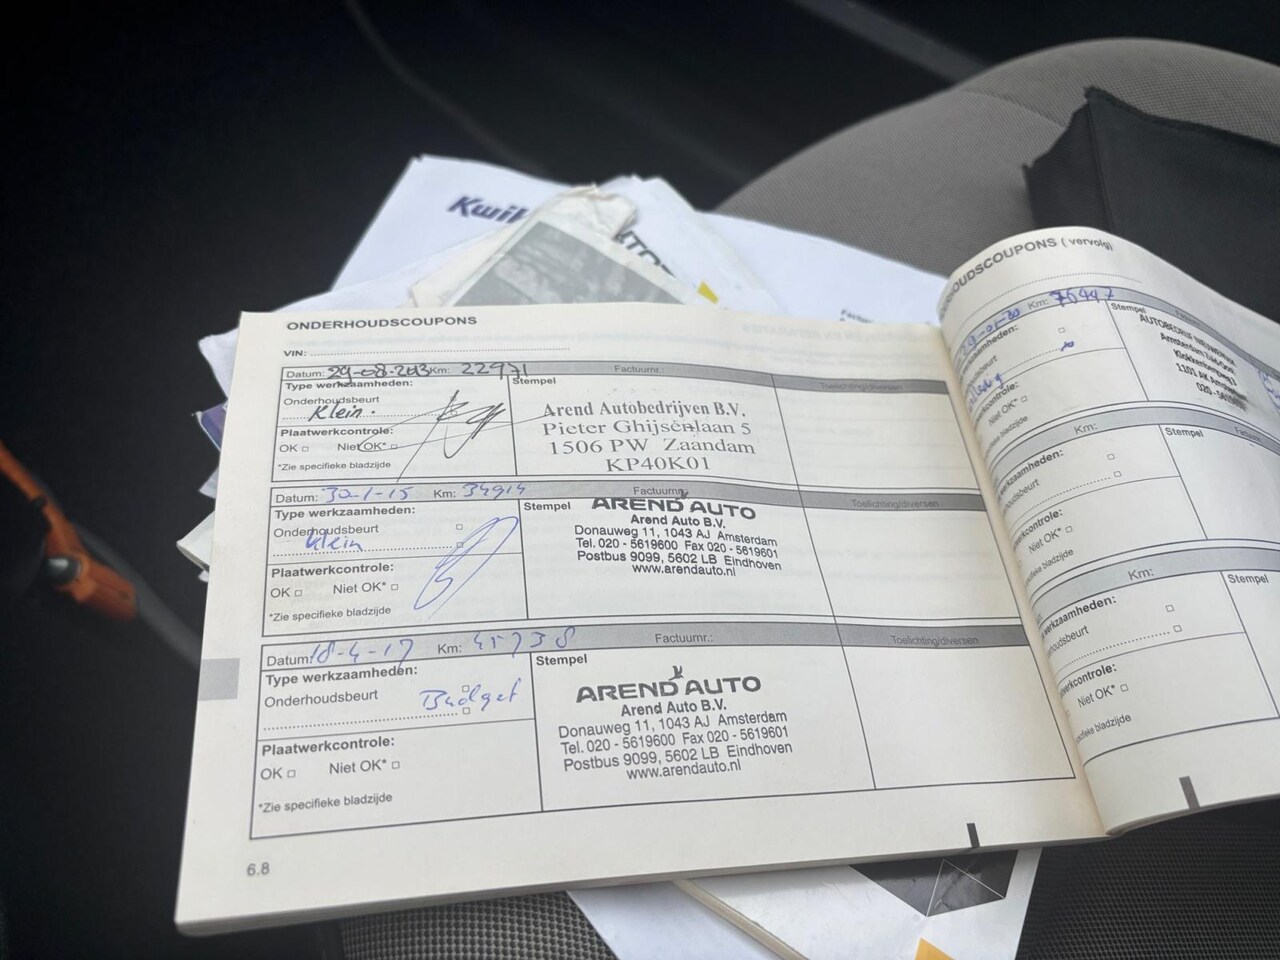 Kwik
ONDERHOUDSCOUPONS
VIN:
Datum: 29-08-2013 Km: 22971 Factuurnr.: Toelichting/diversen
Type werkzaamheden:
Stempel
Onderhoudsbeurt
Klein.
Plaatwerkcontrole:
OK Niet OK*
*Zie specifieke bladzijde
Arend Autobedrijven B.V.
Pieter Ghijsenlaan 5
1506 PW Zaandam
KP40K01
Datum: 30-1-15 Km: 34914 Factuurnr. Toelichting/diversen
Type werkzaamheden:
Stempel
Onderhoudsbeurt
Klein
Plaatwerkcontrole:
OK Niet OK*
*Zie specifieke bladzijde
AREND AUTO
Arend Auto B.V.
Donauweg 11, 1043 AJ Amsterdam
Tel. 020 - 5619600 Fax 020 - 5619601
Postbus 9099, 5602 LB Eindhoven
www.arendauto.nl
Datum: 18-4-17 Km: 45738 Factuurnr.: Toelichting/diversen
Type werkzaamheden:
Stempel
Onderhoudsbeurt
Budget
Plaatwerkcontrole:
OK Niet OK*
*Zie specifieke bladzijde
AREND AUTO
Arend Auto B.V.
Donauweg 11, 1043 AJ Amsterdam
Tel. 020 - 5619600 Fax 020 - 5619601
Postbus 9099, 5602 LB Eindhoven
www.arendauto.nl
6.8
OUDSCOUPONS ( vervolg)
Km: 76447
Stempel
werkzaamheden:
Niet OK*
specifieke bladzijde
Amsterdam
Km:
Stempel
Factuurnr
werkzaamheden:
Niet OK*
specifieke bladzijde
Km:
Stempel
werkzaamheden:
Niet OK*
specifieke bladzijde